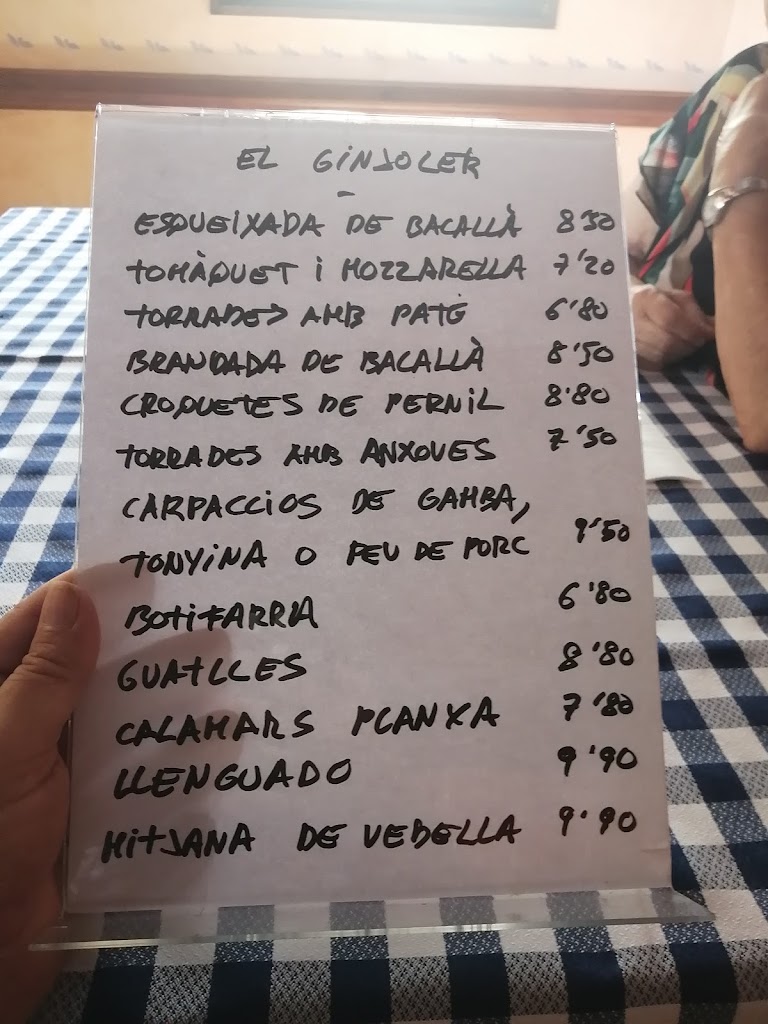 EL GINJOLER
-
ESQUEIXADA DE BACALLÀ 8'30
TOMÀQUET I MOZZARELLA 7'20
TORRADES AMB PATÉ 6'80
BRANDADA DE BACALLÀ 8'50
CROQUETES DE PERNIL 8'80
TORRADES AMB ANXOVES 7'50
CARPACCIOS DE GAMBA,
TONYINA O PEU DE PORC 9'50
BOTIFARRA 6'80
GUATLLES 8'80
CALAMARS PLANXA 7'80
LLENGUADO 9'90
MITJANA DE VEDELLA 9'90